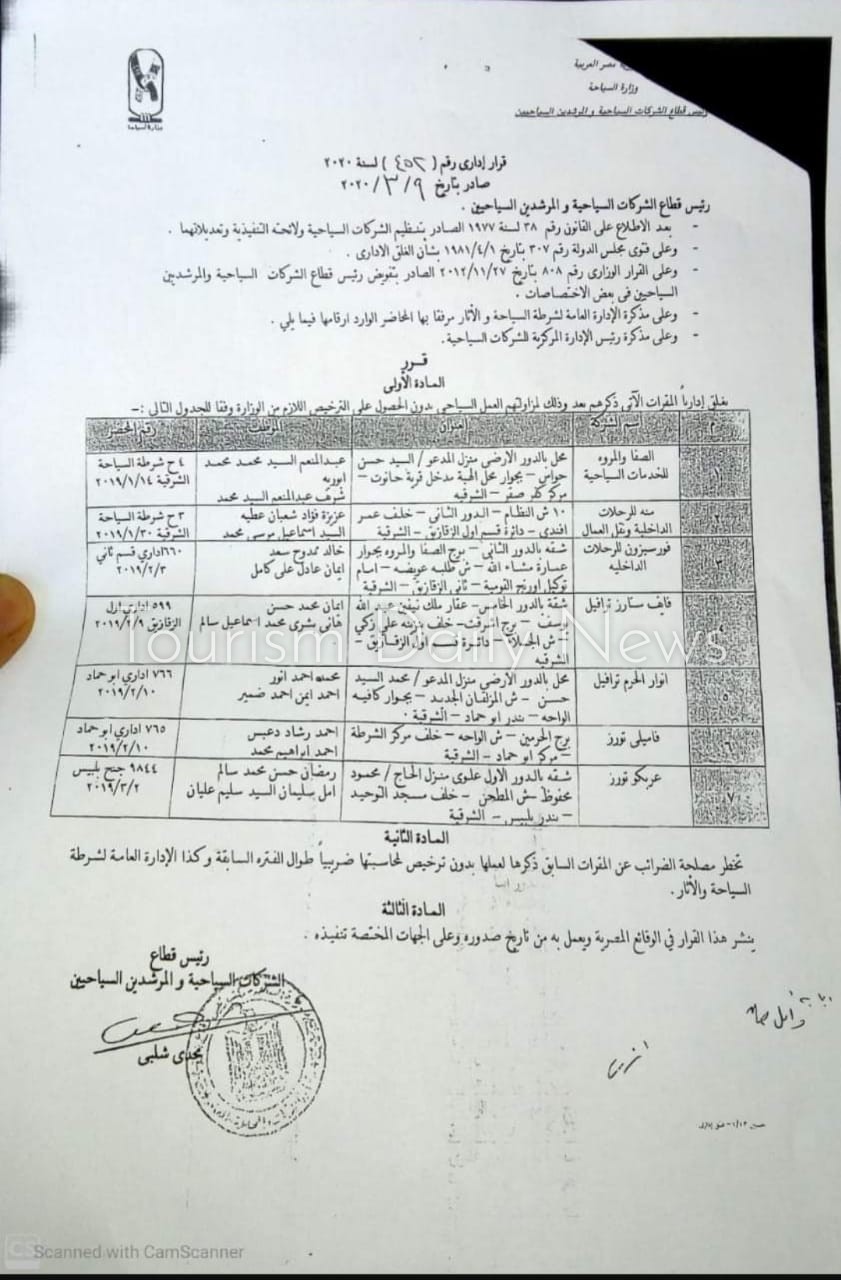 مصر العربية
وزارة السياحة
رئيس قطاع الشركات السياحية و المرشدين السياحيين
وزارة السياحة
قرار إدارى رقم ( ٤٥٢ ) لسنة ٢٠٢٠
صادر بتاريخ ٩ / ٣ / ٢٠٢٠
رئيس قطاع الشركات السياحية و المرشدين السياحيين .
- بعد الاطلاع على القانون رقم ٣٨ لسنة ١٩٧٧ الصادر بتنظيم الشركات السياحية ولائحته التنفيذية وتعديلاتهما .
- وعلى فتوى مجلس الدولة رقم ٣٠٧ بتاريخ ١٩٨١/٤/١ بشأن الغلق الادارى .
- وعلى القرار الوزارى رقم ٨٠٨ بتاريخ ٢٠١٢/١١/٢٧ الصادر بتفويض رئيس قطاع الشركات السياحية والمرشديين
السياحيين فى بعض الاختصاصات .
- وعلى مذكرة الإدارة العامة لشرطة السياحة و الأثار مرفقا بها المحاضر الوارد ارقامها فيما يلي .
- وعلى مذكرة رئيس الإدارة المركزية للشركات السياحية.
قــرر
المادة الأولى
يغلق إدارياً المقرات الآتى ذكرهم بعد وذلك لمزاولتهم العمل السياحى بدون الحصول على الترخيص اللازم من الوزارة وفقا للجدول التالى :-
م اسم الشركة العنوان رقم المحضر
١ الصفا والمروه محل بالدور الارضى منزل المدعو / السيد حسن عبدالمنعم السيد محمد محمد ٤ح شرطة السياحة
للخدمات السياحية حواس – بجوار محل الهبة مدخل قرية حانوت – ابوريه الشرقية ٢٠١٩/١/١٤
مركز كفر صقر – الشرقيه شريف عبدالمنعم السيد محمد
٢ منه للرحلات ١٠ ش النظام – الدور الثانى – خلف عمر عزيزة فؤاد شعبان عطيه ٣ح شرطة السياحة
الداخلية ونقل العمال افندى – دائرة قسم اول الزقازيق – الشرقية السيد اسماعيل مرسى محمد الشرقية ٢٠١٩/١/٣٠
٣ فورسيزون للرحلات شقه بالدور الثانى – برج الصفا والمروه بجوار خالد ممدوح سعد ٦٦٠ادارى قسم ثاني
الداخليه عمارة مشاء الله – ش طلبه عويضه – امام ايمان عادل على كامل ٢٠١٩/٢/٣
توكيل اورنج القومية – ثانى الزقازيق – الشرقية
٤ فايف ستارز ترافيل شقة بالدور الخامس – عقار ملك نيفين عبد الله ايمان محمد حسن ٥٩٩ ادارى اول
يوسف – برج – خلف على زكي هانى بشرى محمد اسماعيل سالم الزقازيق ٢٠١٩/٢/٩
– ش الجلاء – دائرة قسم اول الزقازيق –
الشرقيه
٥ انوار الحرم ترافيل محل بالدور الأرضي منزل المدعو / محمد السيد محمد احمد انور ٧٦٦ اداري ابو حماد
حسن – ش المزلقان الجديد – بجوار كافيه احمد ايمن احمد ضمير ٢٠١٩/٢/١٠
الواحه – بندر ابو حماد – الشرقية .
٦ فاميلى تورز برج الحرمين – ش الواحه – خلف مركز الشرطة احمد رشاد دعبس ٧٦٥ إداري ابو حماد
– مركز ابو حماد – الشرقية احمد ابراهيم محمد ٢٠١٩/٢/١٠
٧ عربكو تورز شقه بالدور الاول علوى منزل الحاج / محمود رمضان حسن محمد سالم ٩٨٤٤ جنح بلبيس
محفوظ – ش المطحن – خلف مسجد التوحيد امل سليمان السيد سليم عليان ٢٠١٩/٣/٢
– بندر بلبيس – الشرقية
المادة الثانية
تخطر مصلحة الضرائب عن المقرات السابق ذكرها لعملها بدون ترخيص لمحاسبتها ضريبياً طوال الفتره السابقة وكذا الإدارة العامة لشرطة
السياحة والأثار .
المادة الثالثة
ينشر هذا القرار في الوقائع المصرية ويعمل به من تاريخ صدوره وعلى الجهات المختصة تنفيذه .
رئيس قطاع
الشركات السياحية و المرشدين السياحيين
مجدى شلبى
Tourism Daily News
CS Scanned with CamScanner